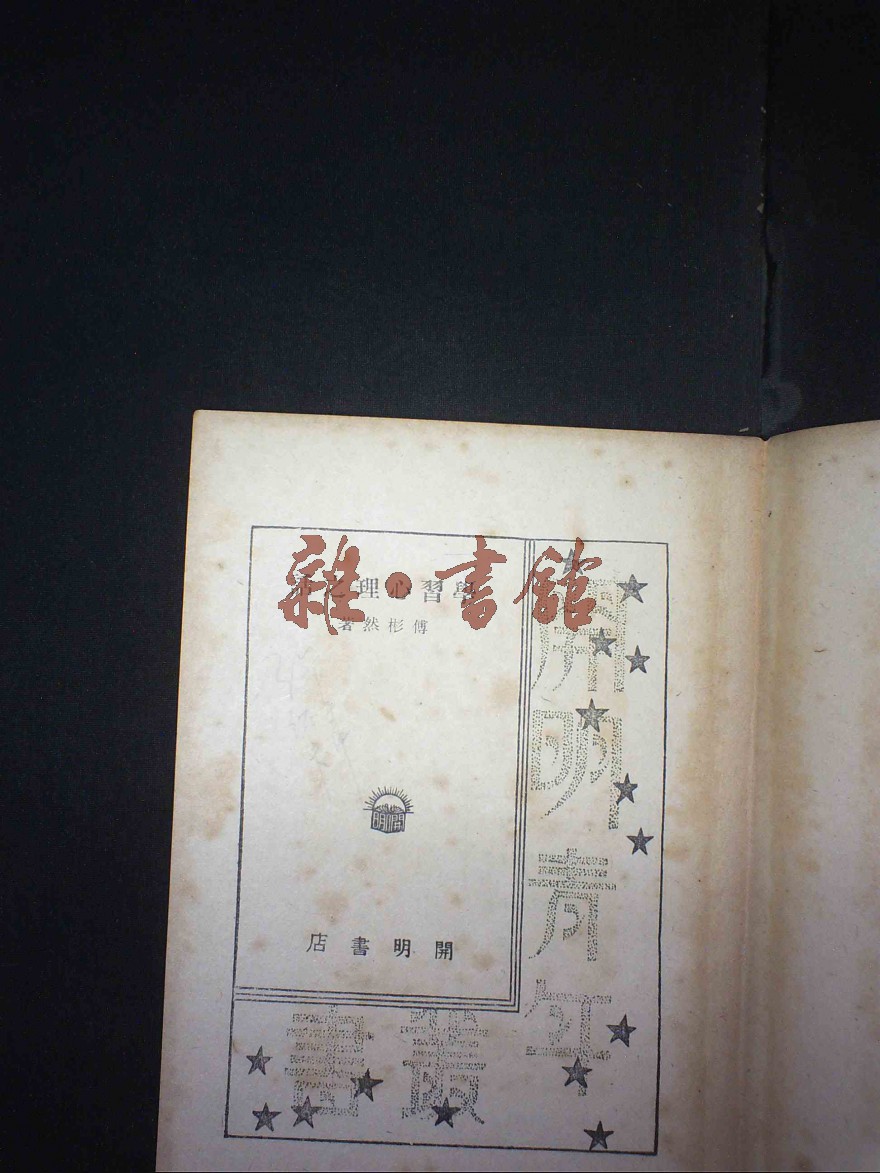 學習心理
傅彬然著
開明
開明書店
開明青年
叢書
雜·書館